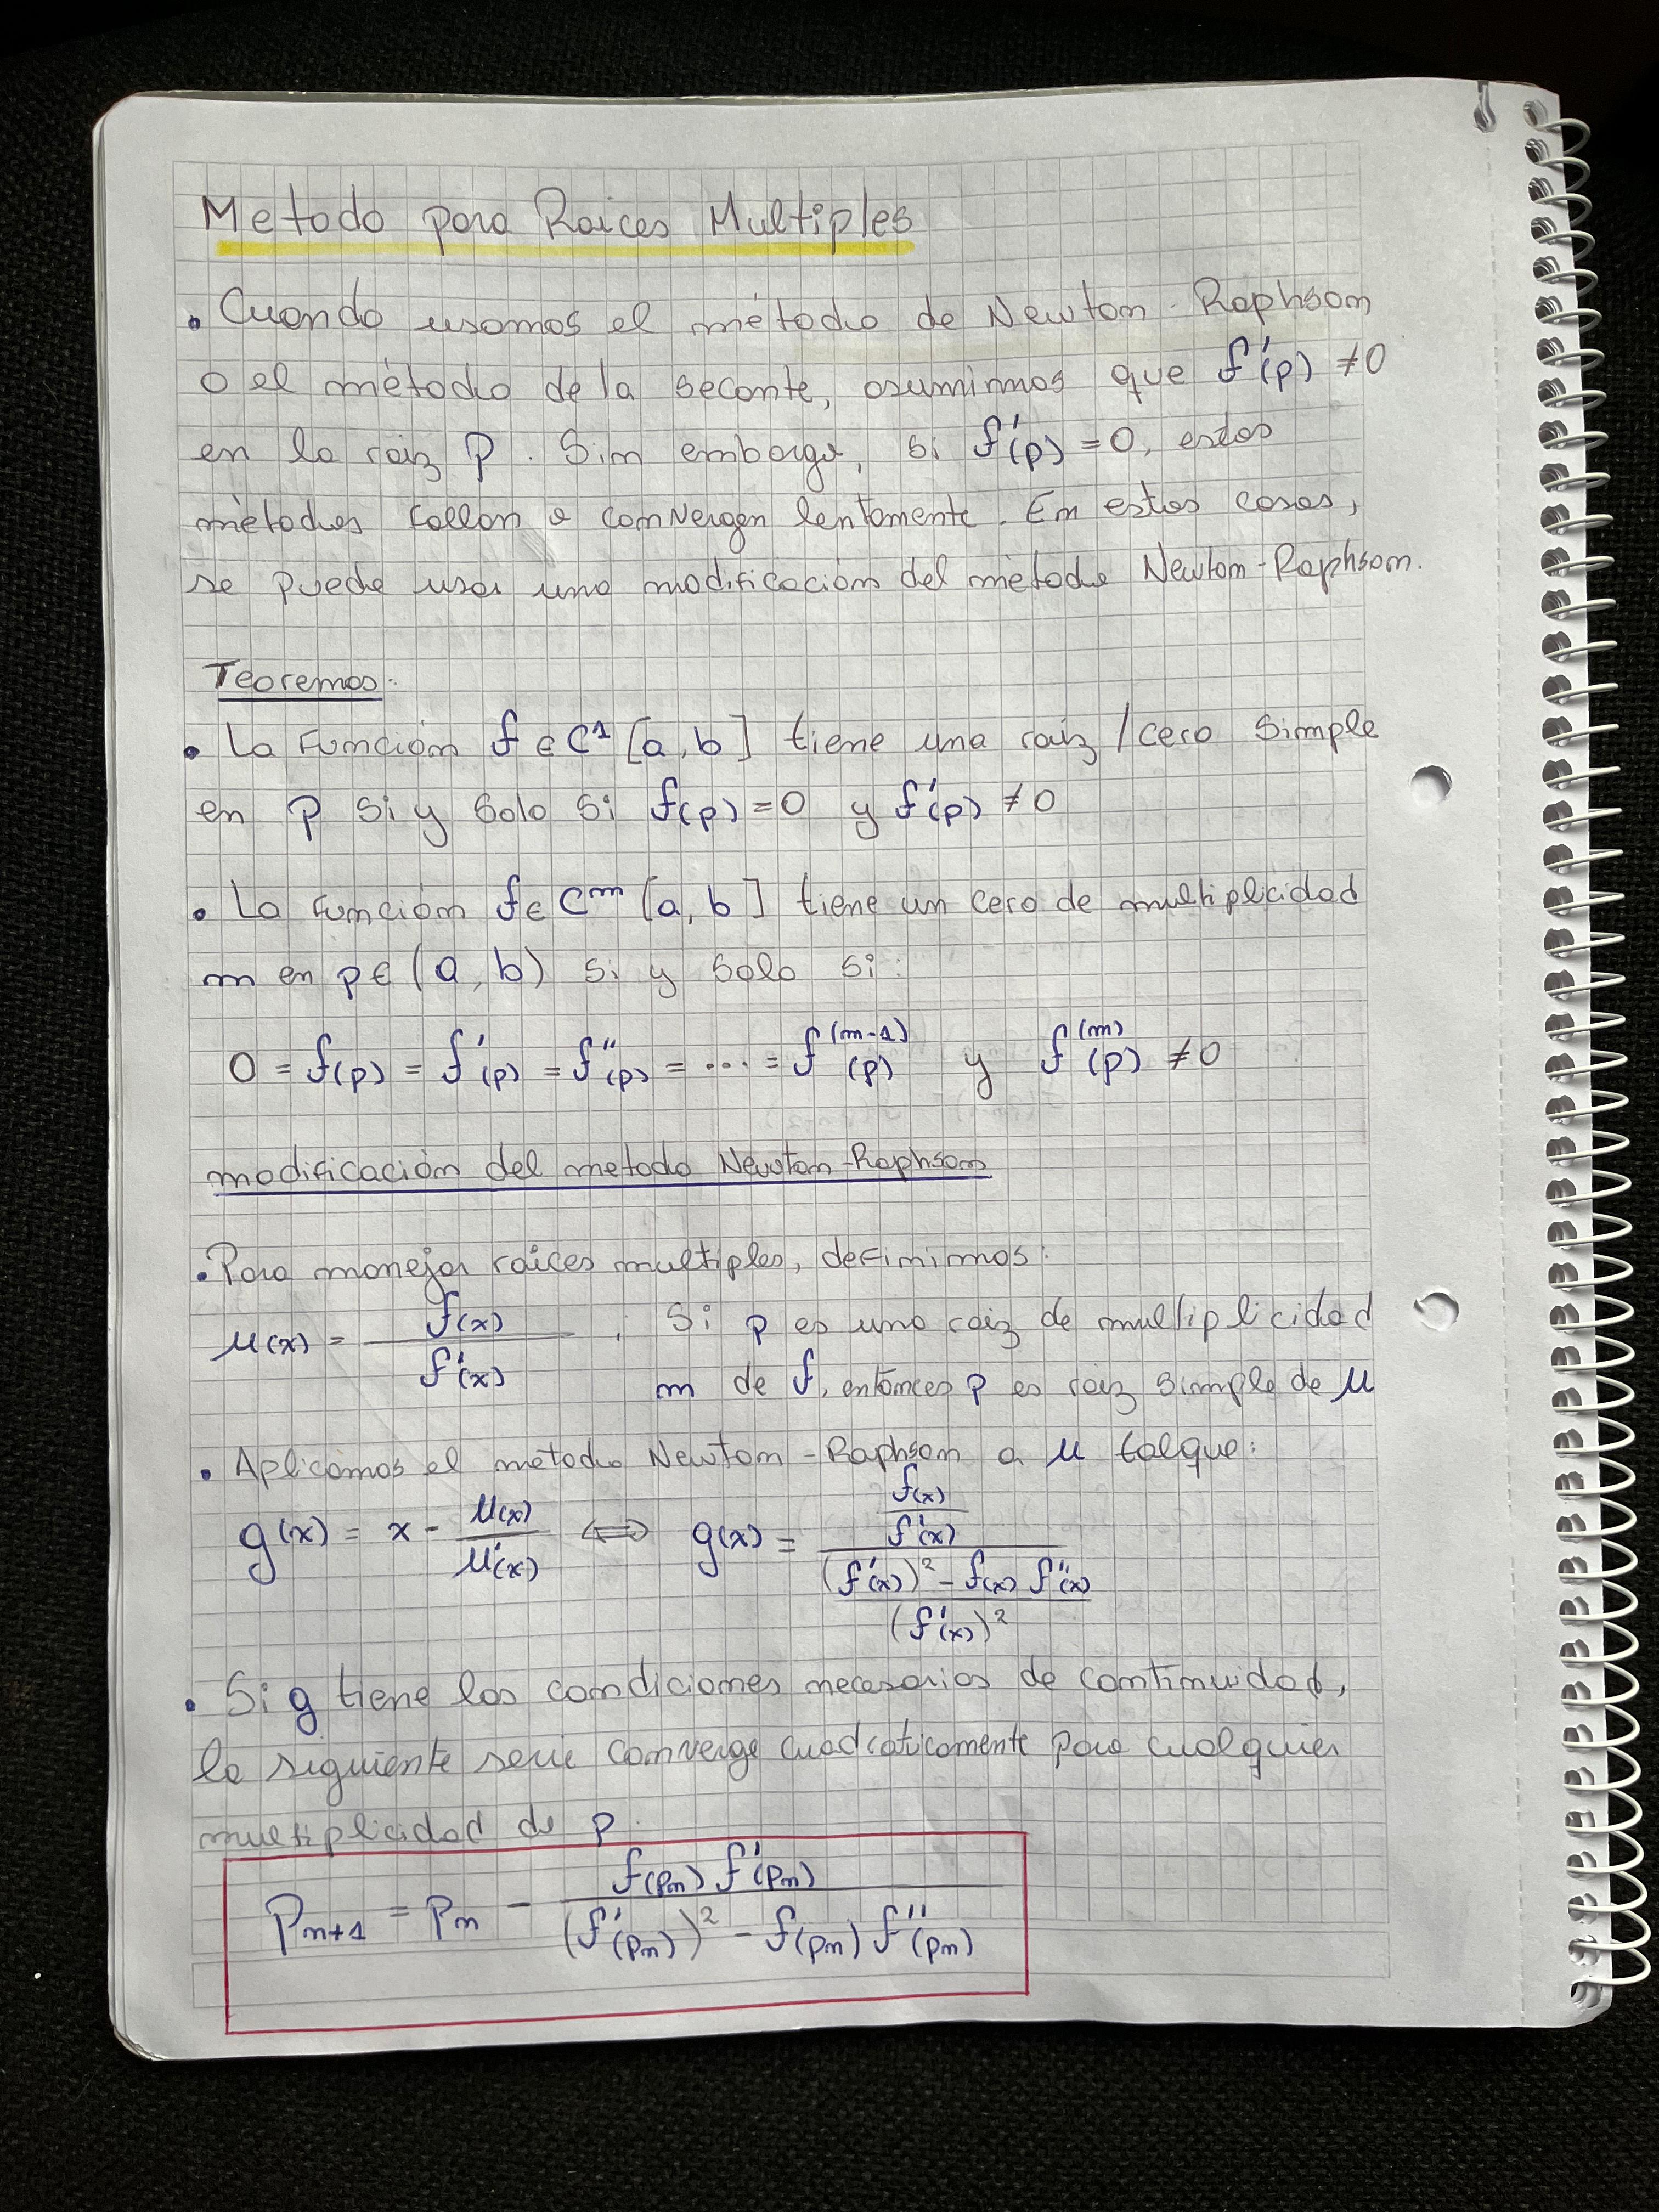 Metodo para Raices Multiples
• Cuando usamos el método de Newton-Raphson
o el método de la secante, asumimos que f'(p) ≠ 0
en la raiz p. Sin embargo, si f'(p) = 0, estos
métodos fallan o convergen lentamente. En estos casos,
se puede usar una modificación del método Newton-Raphson.
Teoremas:
• La función f ∈ C¹ [a, b] tiene una raiz / cero simple
en p si y solo si f(p) = 0 y f'(p) ≠ 0
• La función f ∈ Cᵐ [a, b] tiene un cero de multiplicidad
m en p ∈ (a, b) si y solo si:
0 = f(p) = f'(p) = f''(p) = ··· = f^(m-1)(p) y f^(m)(p) ≠ 0
modificación del metodo Newton-Raphson
• Para manejar raíces multiples, definimos:
μ(x) = f(x) / f'(x) ; Si p es una raiz de multiplicidad
m de f, entonces p es raiz simple de μ
• Aplicamos el metodo Newton-Raphson a μ tal que:
g(x) = x - μ(x) / μ'(x) ⟺ g(x) = (f(x) / f'(x)) / (((f'(x))² - f(x) f''(x)) / (f'(x))²)
• Si g tiene las condiciones necesarias de continuidad,
la siguiente serie converge cuadraticamente para cualquier
multiplicidad de p.
p_{n+1} = p_n - f(p_n) f'(p_n) / ((f'(p_n))² - f(p_n) f''(p_n))